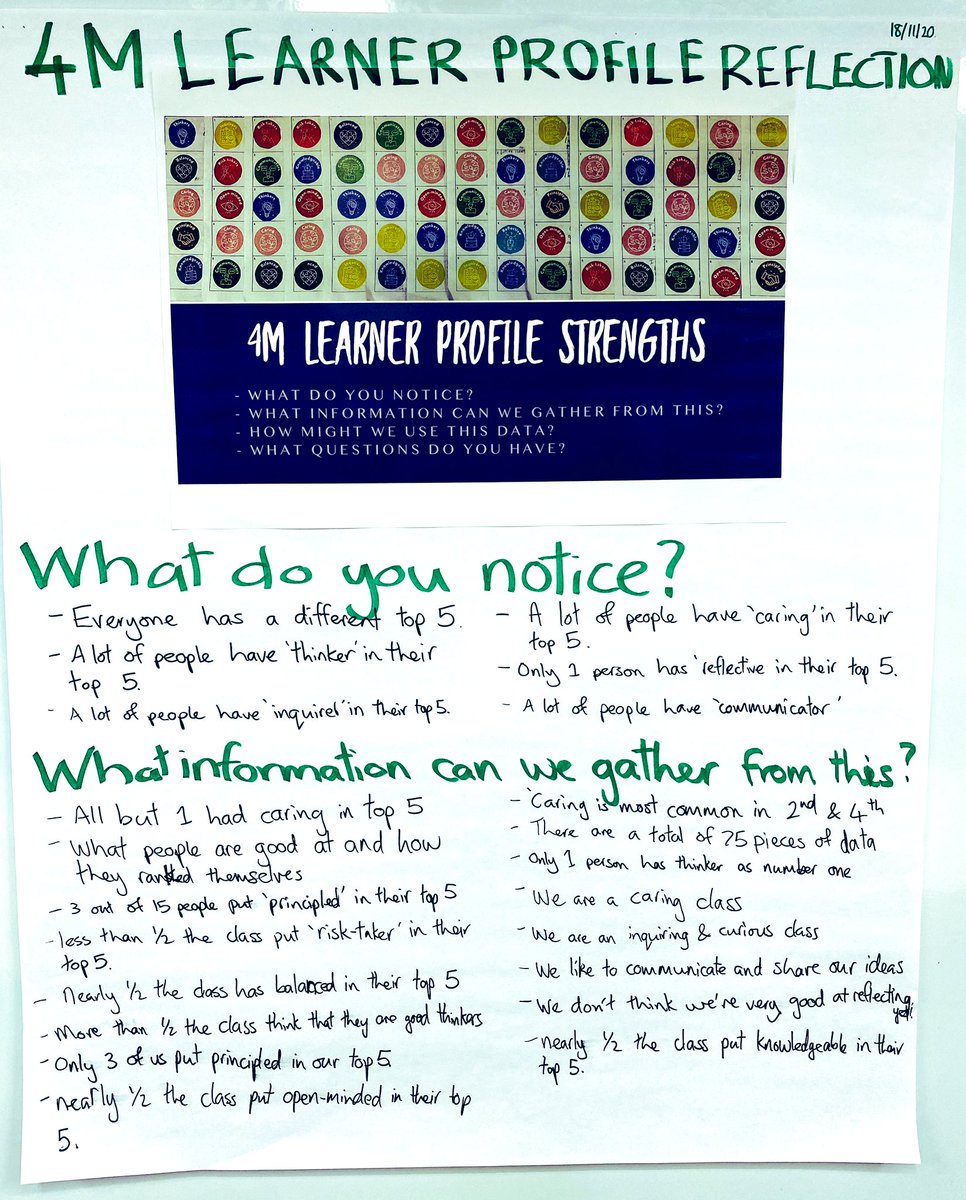 18/11/20
4M LEARNER PROFILE REFLECTION
4M LEARNER PROFILE STRENGTHS
- WHAT DO YOU NOTICE?
- WHAT INFORMATION CAN WE GATHER FROM THIS?
- HOW MIGHT WE USE THIS DATA?
- WHAT QUESTIONS DO YOU HAVE?
What do you notice?
- Everyone has a different top 5.
- A lot of people have 'thinker' in their
top 5.
- A lot of people have 'inquirer' in their top 5.
- A lot of people have 'caring' in their
top 5.
- Only 1 person has 'reflective in their top 5.
- A lot of people have 'communicator'
What information can we gather from this?
- All but 1 had caring in top 5
- What people are good at and how
they ranked themselves
- 3 out of 15 people put 'principled' in their top 5
- less than 1/2 the class put 'risk-taker' in their
top 5.
- nearly 1/2 the class has balanced in their top 5
- More than 1/2 the class think that they are good thinkers
- Only 3 of us put principled in our top 5
- nearly 1/2 the class put open-minded in their top
5.
- 'Caring is most common in 2nd & 4th
- There are a total of 75 pieces of data
- Only 1 person has thinker as number one
- We are a caring class
- We are an inquiring & curious class
- We like to communicate and share our ideas
- We don't think we're very good at reflecting
yet!
- nearly 1/2 the class put knowledgeable in their
top 5.